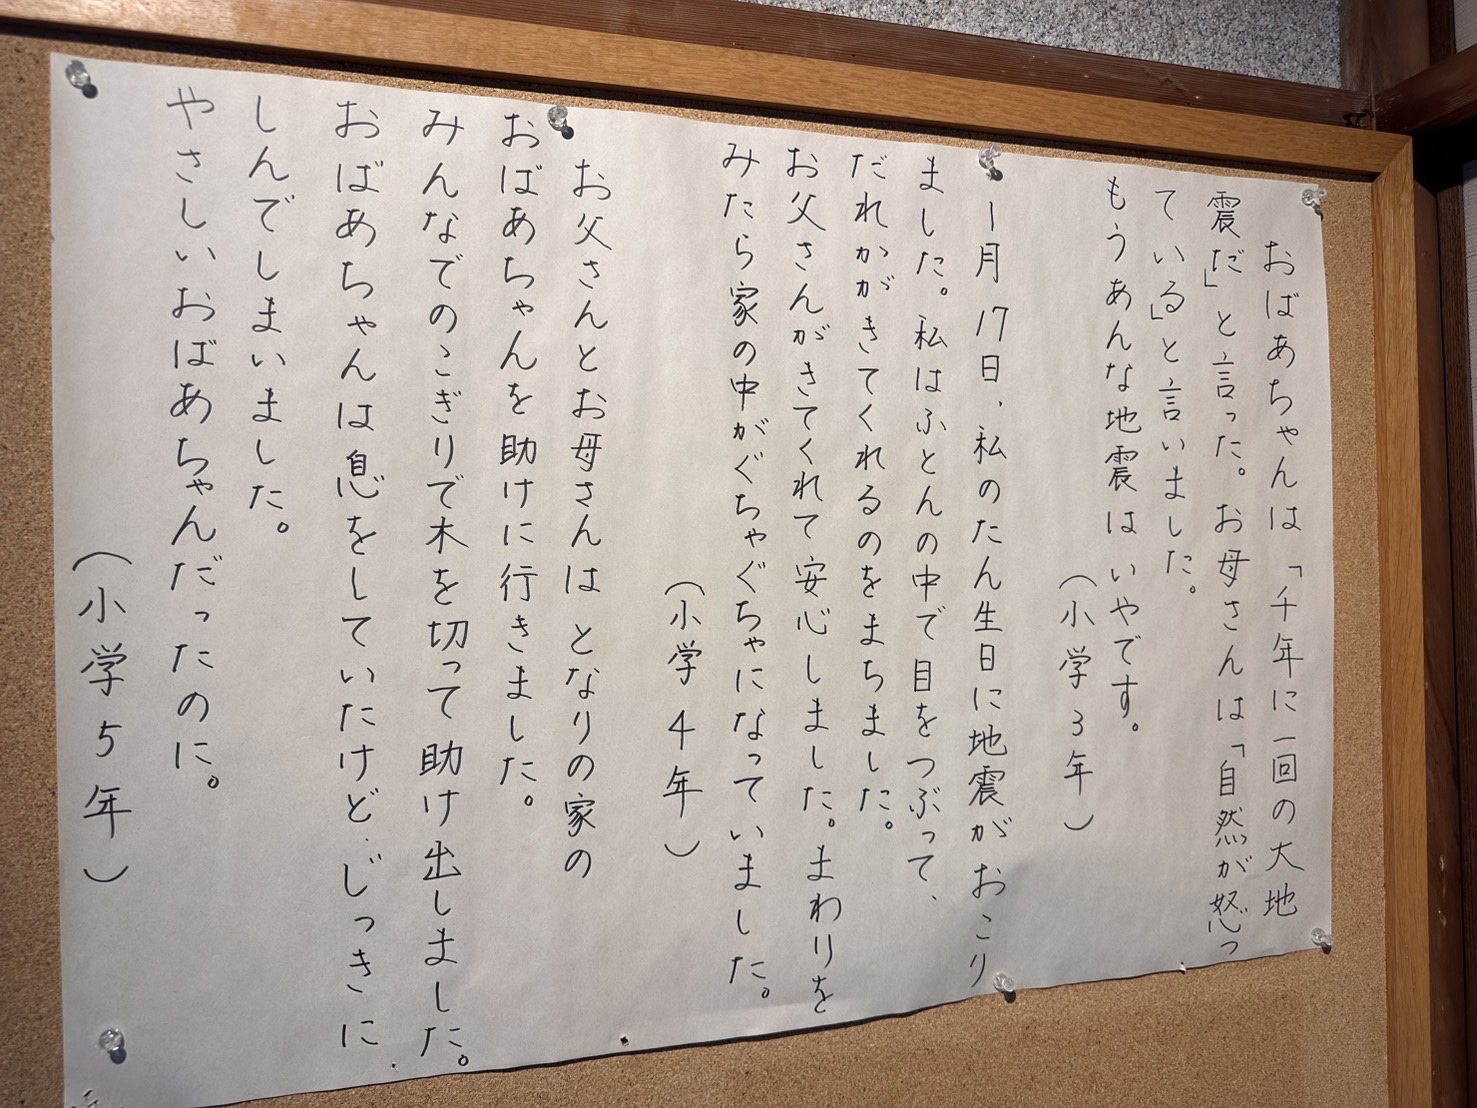 おばあちゃんは「千年に一回の大地
震だ」と言った。お母さんは「自然が怒っ
ている」と言いました。
もうあんな地震はいやです。
(小学3年)
1月17日、私のたん生日に地震がおこり
ました。私はふとんの中で目をつぶって、
だれかがきてくれるのをまちました。
お父さんがきてくれて安心しました。まわりを
みたら家の中がぐちゃぐちゃになっていました。
(小学4年)
お父さんとお母さんはとなりの家の
おばあちゃんを助けに行きました。
みんなでのこぎりで木を切って助け出しました。
おばあちゃんは息をしていたけど、じっきに
しんでしまいました。
やさしいおばあちゃんだったのに。
(小学5年)